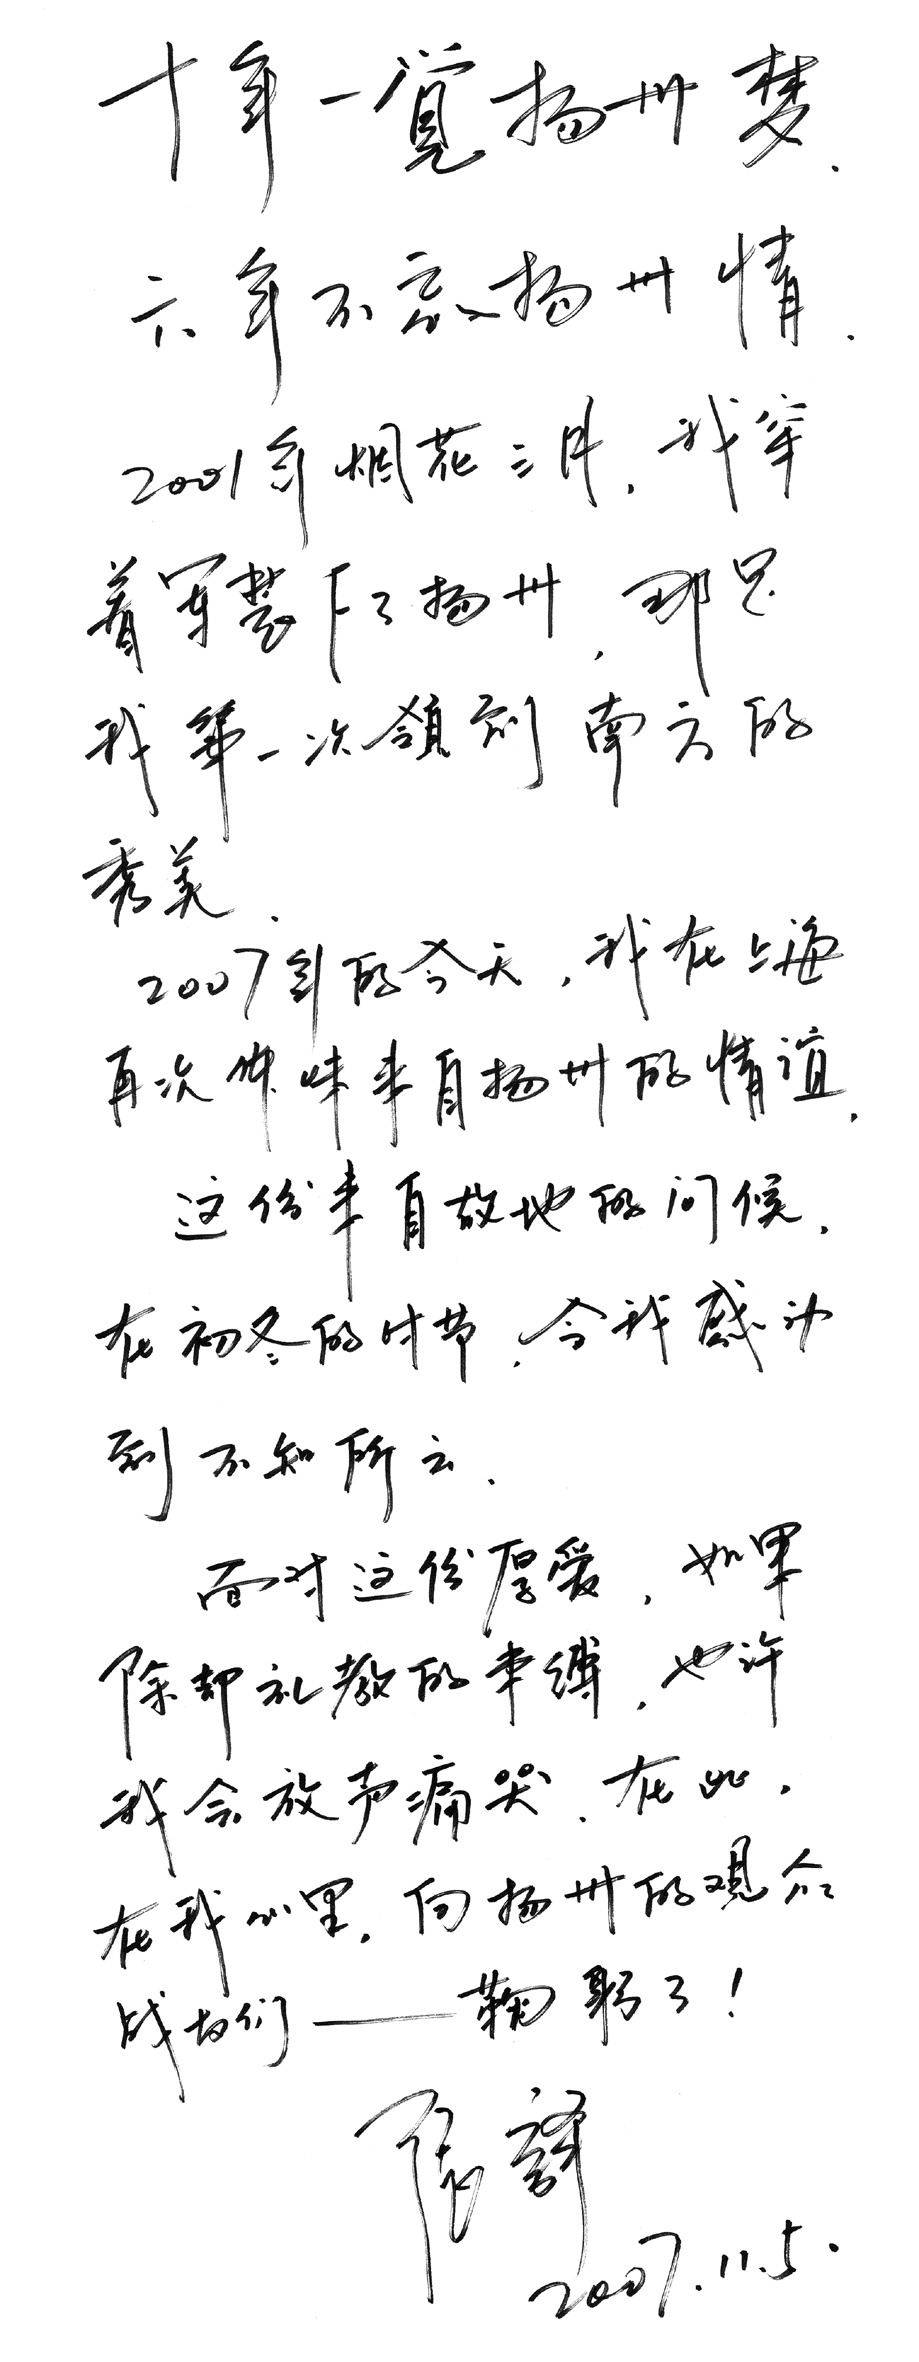 十年一觉扬州梦.
六年不忘扬州情.
2001年烟花三月，我穿
着军装下了扬州，那是
我第一次领到南方的
秀美.
2007年的今天，我在上海
再次体味来自扬州的情谊.
这份来自故地的问候，
在初冬的时节，令我感动
到不知所云.
面对这份厚爱，如果
除却礼教的束缚，也许
我会放声痛哭.在此，
在我心里，向扬州的观众
战友们——鞠躬了！
张译
2007.11.5.